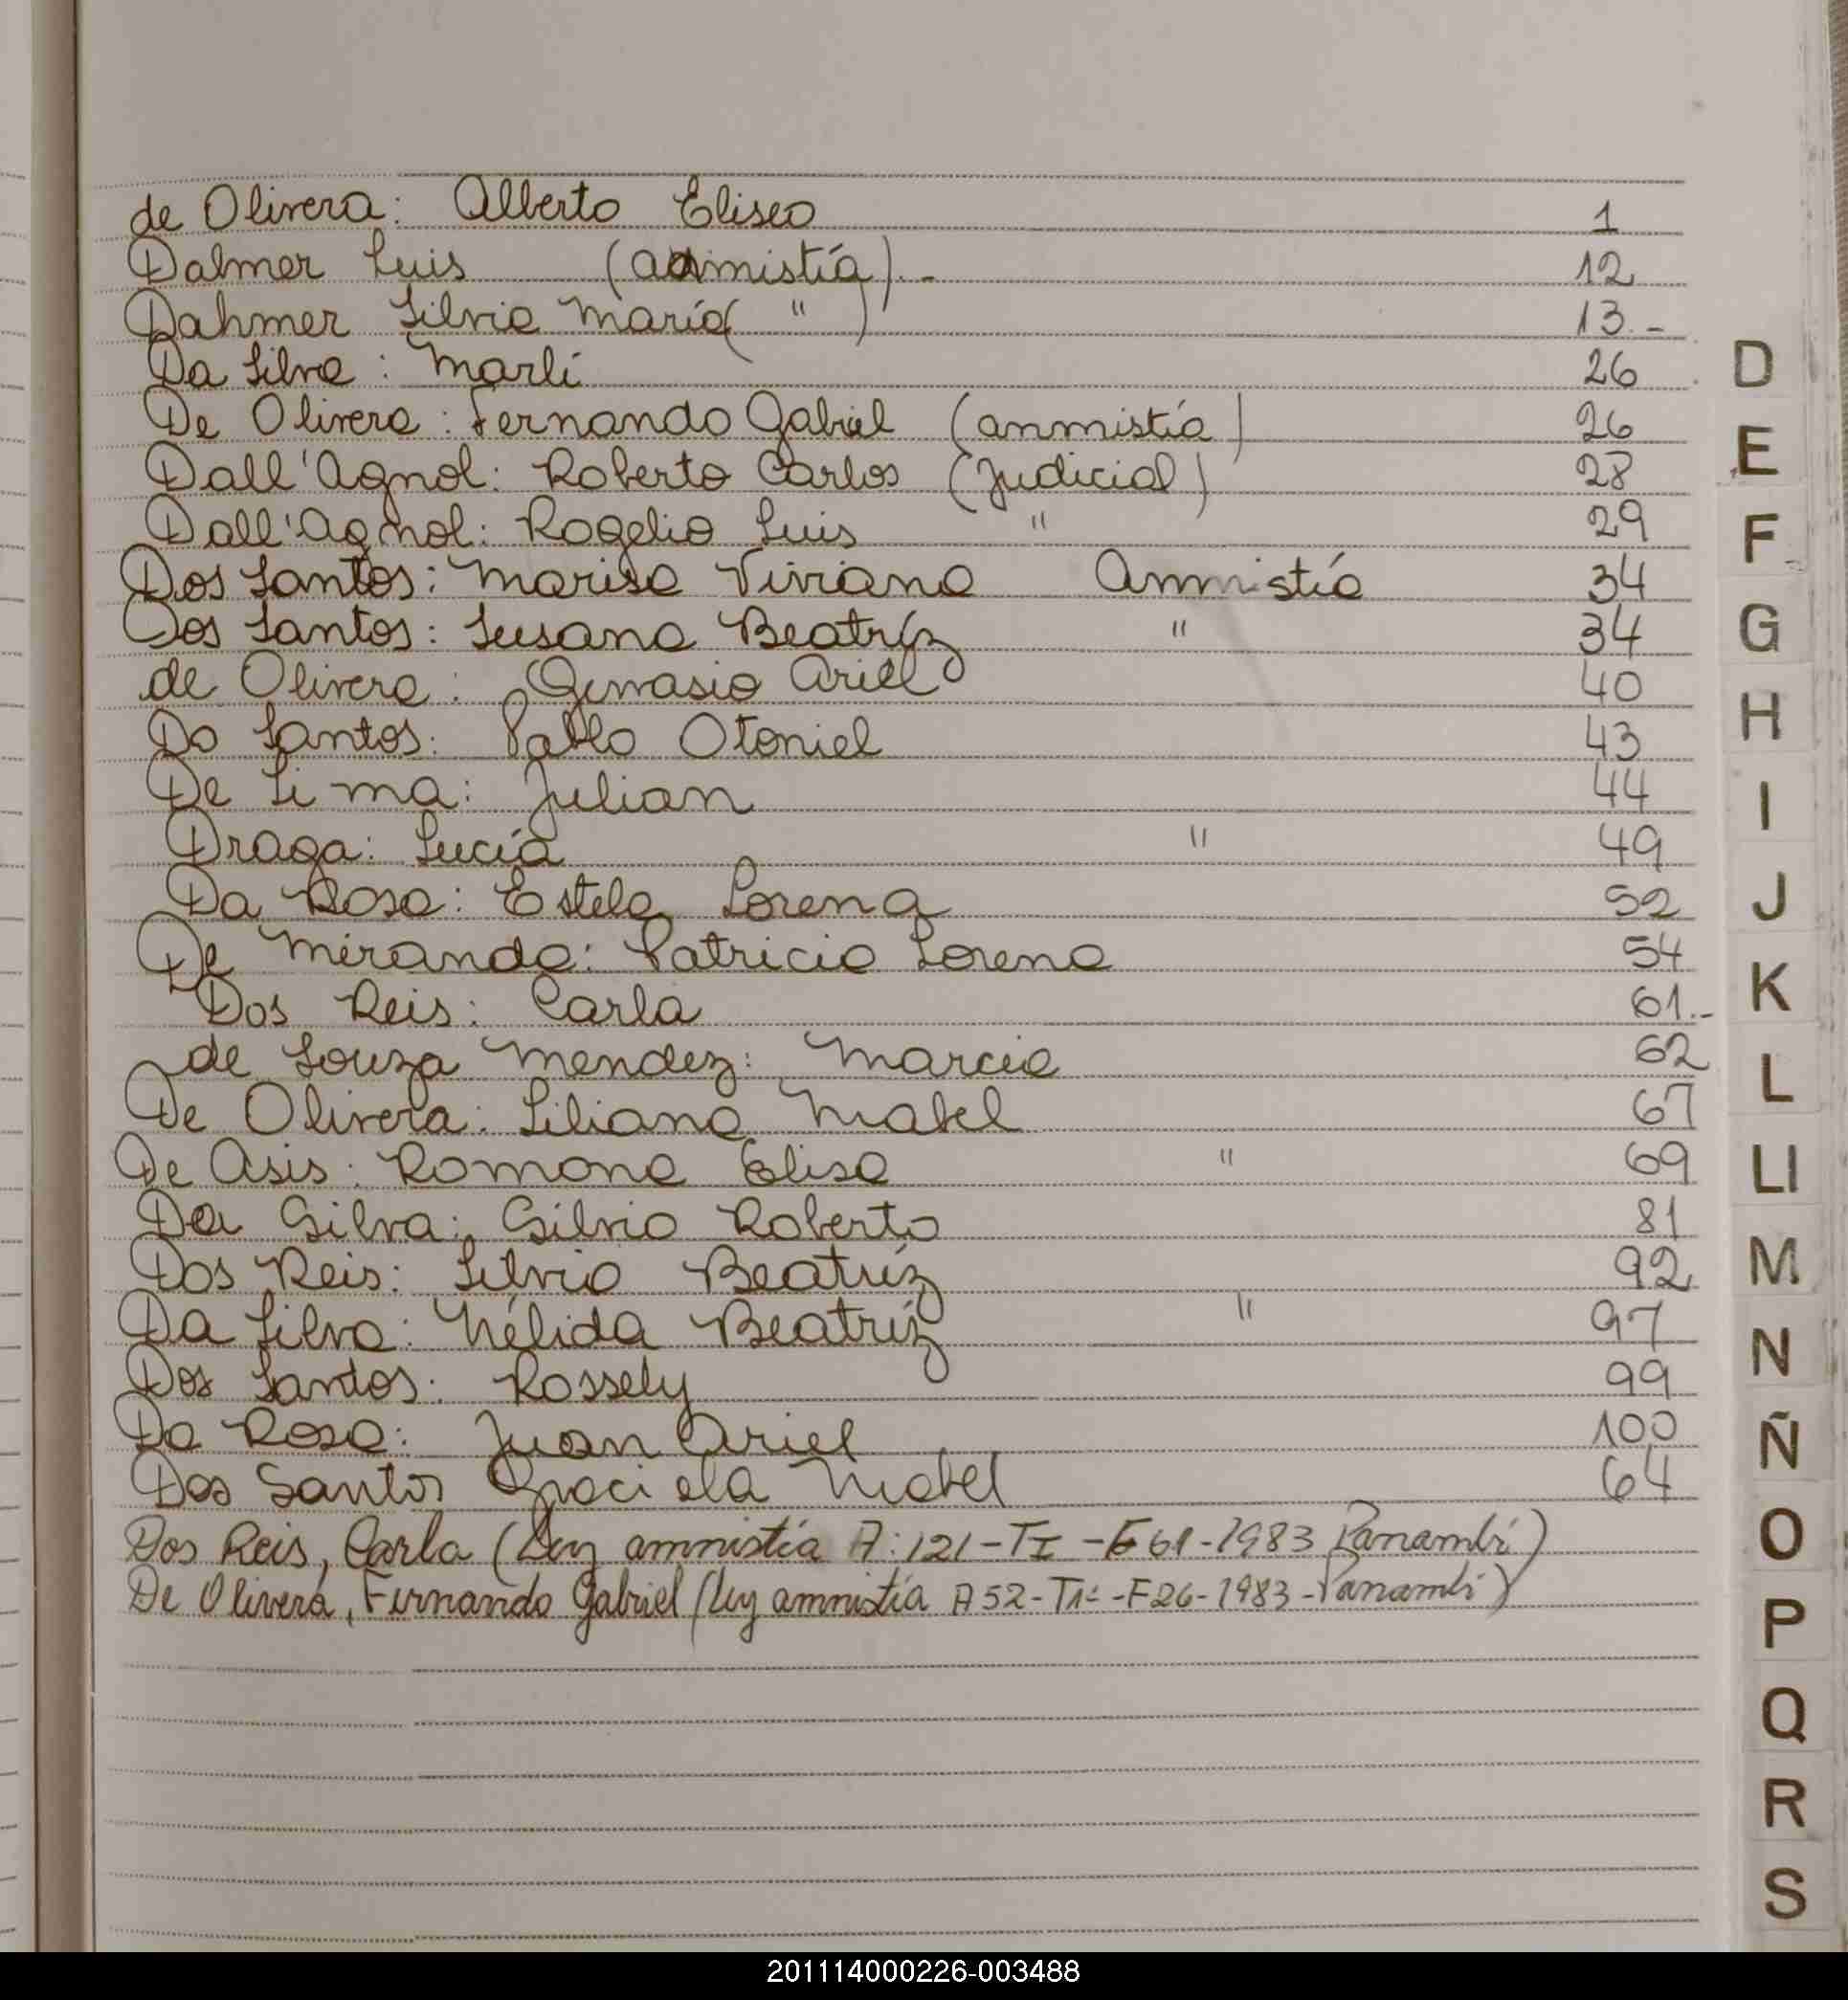 de Olivera: Alberto Eliseo 1
Dalmer Luis (anmistía).- 12
Dahmer Silvia María ( " ) 13.-
Da Silva: Marli 26
De Olivera: Fernando Gabriel (anmistía) 26
Dall'Agnol: Roberto Carlos (Judicial) 28
Dall'Agnol: Rogelio Luis " 29
Dos Santos: Marisa Viviana Anmistía 34
Dos Santos: Susana Beatríz " 34
de Olivera: Gervasio Ariel 40
Do Santos: Pablo Otoniel 43
De Lima: Julian 44
Draga: Lucía " 49
Da Rosa: Estela Lorena 52
De Miranda: Patricia Lorena 54
Dos Reis: Carla 61.-
de Souza Mendez: Marcia 62
De Olivera: Liliana Mabel 67
De Asis: Romona Elisa " 69
Da Silva: Silvio Roberto 81
Dos Reis: Silvia Beatríz 92
Da Silva: Nélida Beatríz " 97
Dos Santos: Rossely 99
Da Rosa: Juan Ariel 100
Dos Santos Graciela Mabel 64
Dos Reis, Carla (Ley amnistía A: 121-TI-F61-1983 Panambí)
De Olivera, Fernando Gabriel (ley amnistía A52-T1º-F26-1983-Panambí)
D
E
F
G
H
I
J
K
L
Ll
M
N
Ñ
O
P
Q
R
S
201114000226-003488